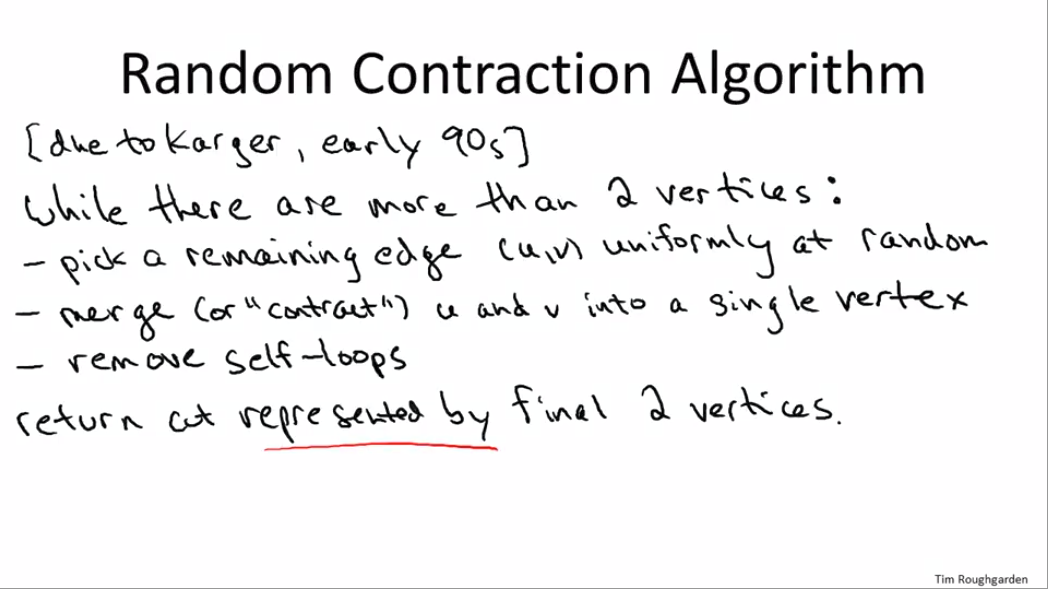 Random Contraction Algorithm
[due to Karger, early 90s]
While there are more than 2 vertices:
- pick a remaining edge (u,v) uniformly at random
- merge (or "contract") u and v into a single vertex
- remove self-loops
return cut represented by final 2 vertices.
Tim Roughgarden